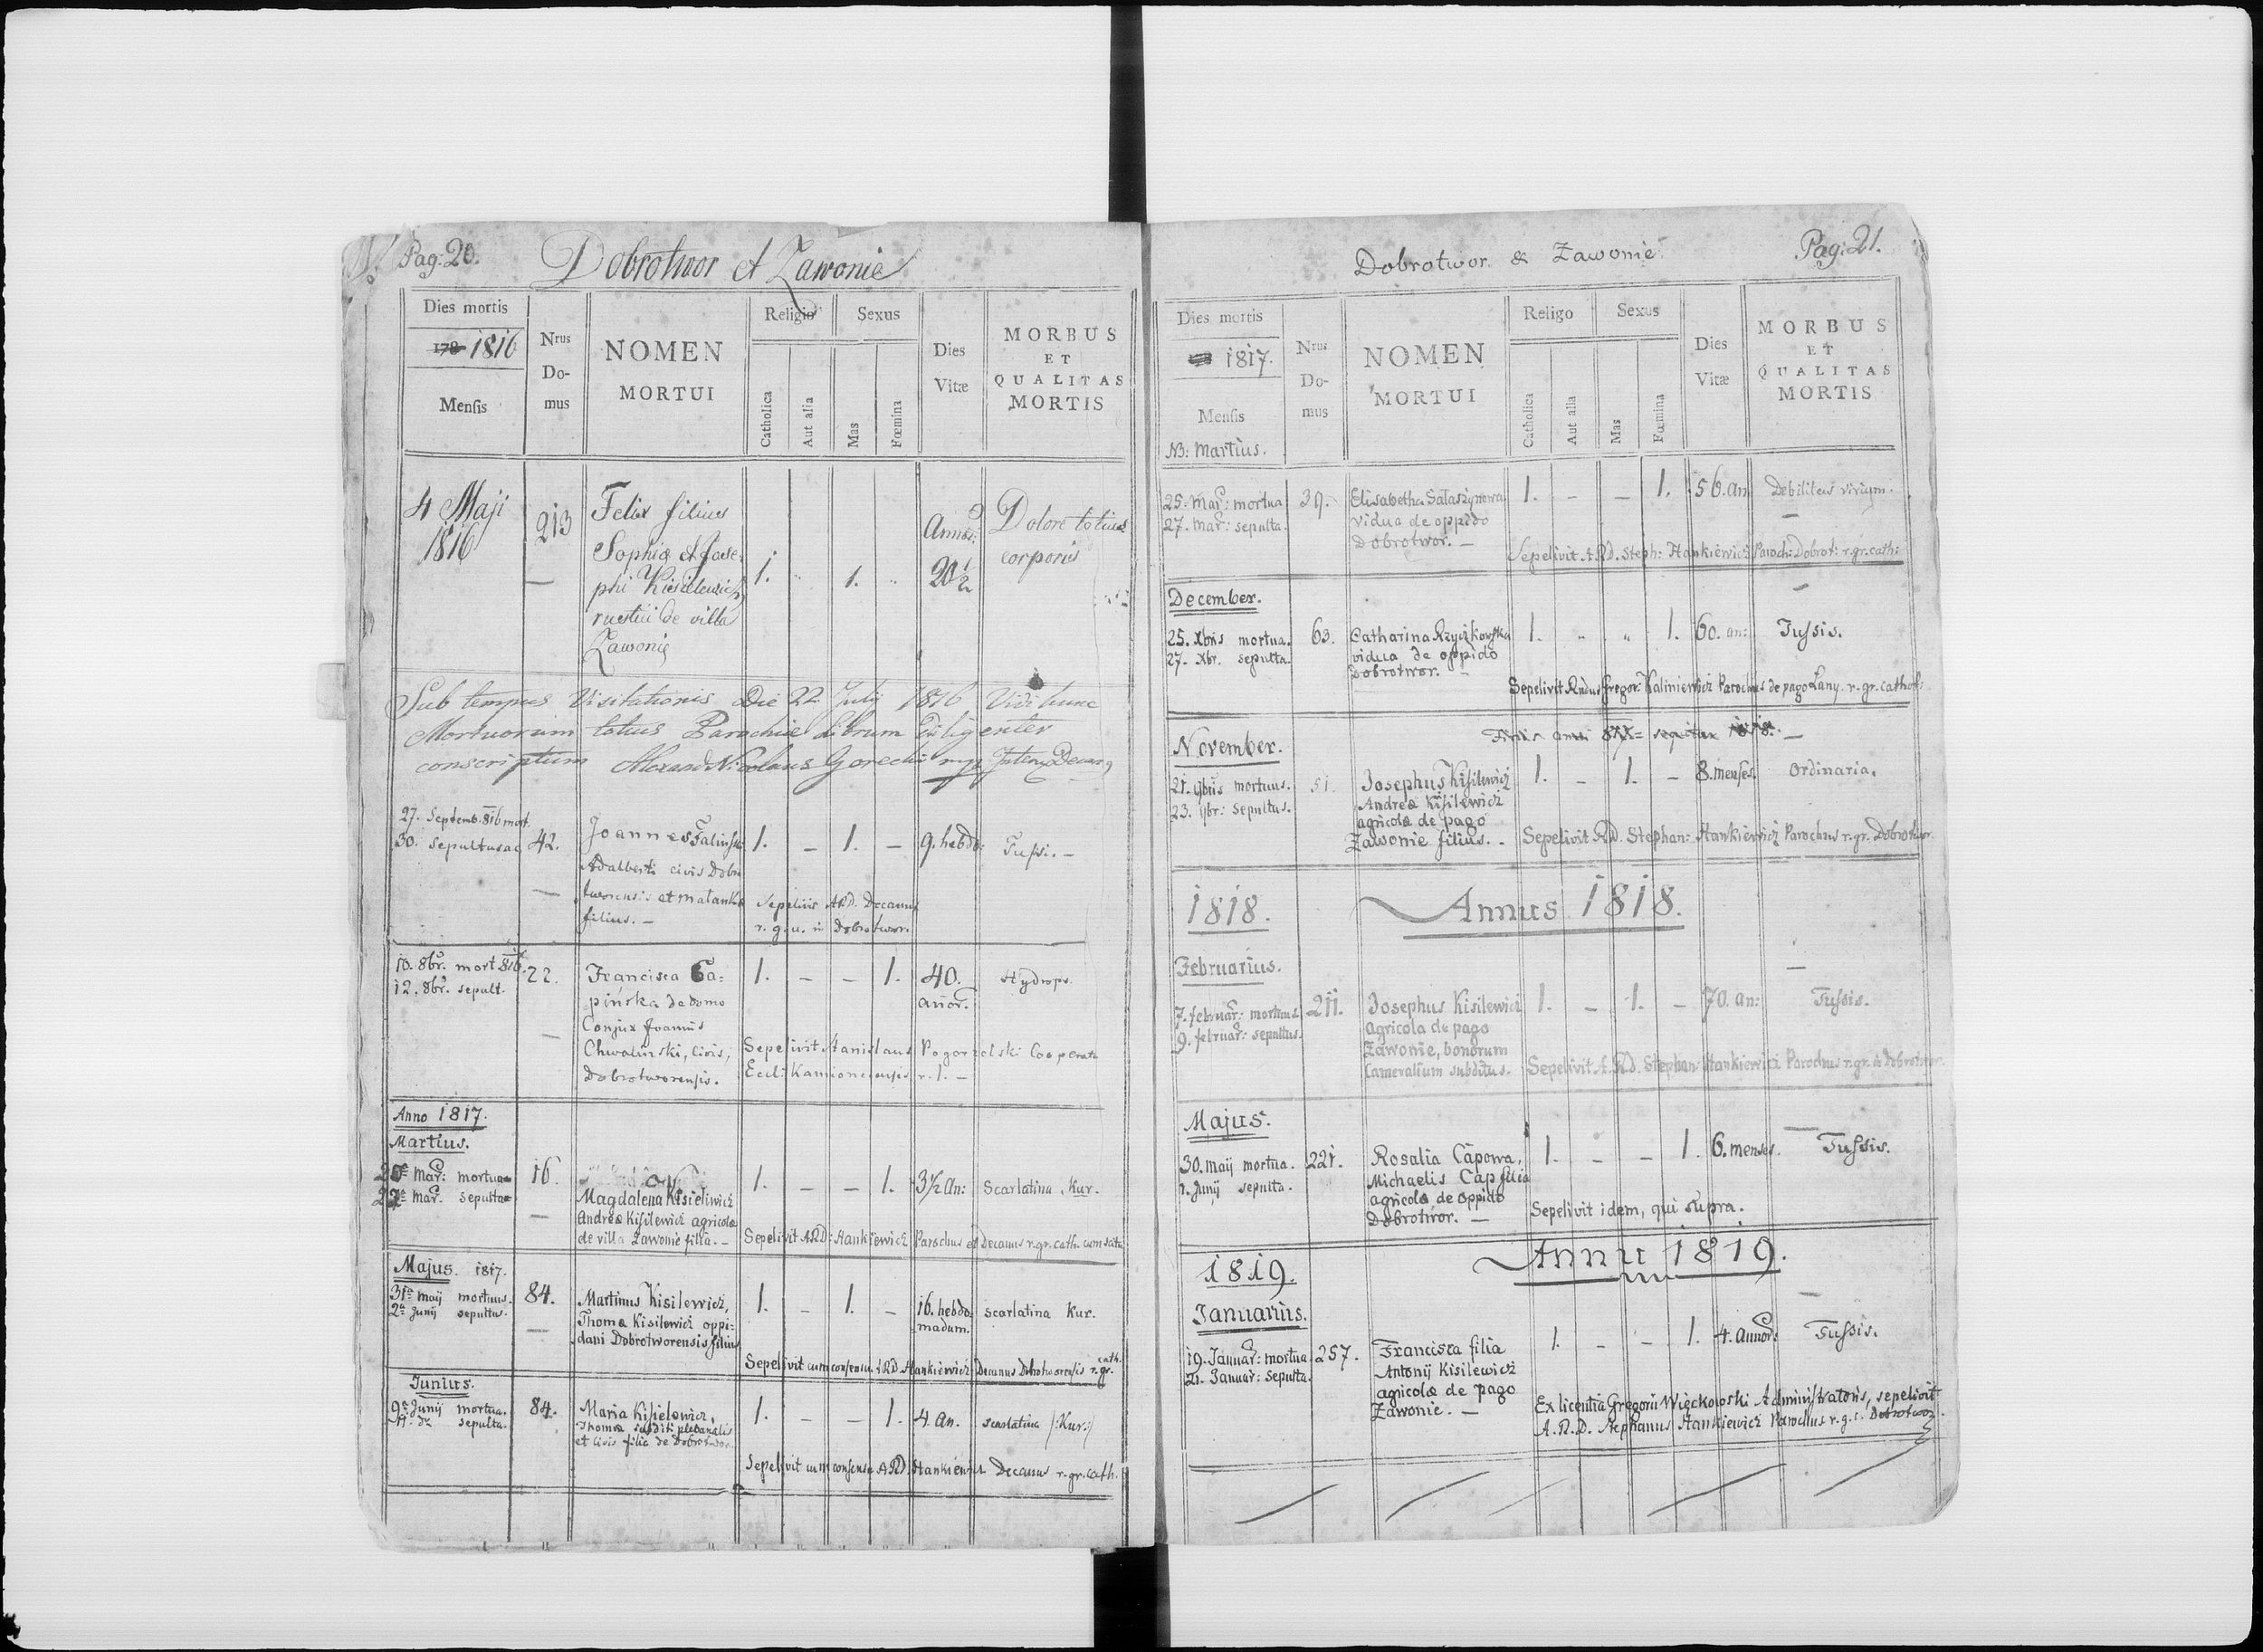 Pag: 20.
Dobrotwor et Zawonie
Dies mortis
178 1816
Mensis
Nrus
Do-
mus
NOMEN
MORTUI
Religio
Catholica
Aut alia
Sexus
Mas
Fœmina
Dies
Vitæ
MORBUS
ET
QUALITAS
MORTIS
4 Maji
1816
213
Felix filius
Sophiæ et Jose-
phi Kisilewicz
rustici de villa
Zawonie
1. " 1. "
Annor:
20 1/2
Dolore totius
corporis
Sub tempus Visitationis Die 22 July 1816 Vidi hunc
Mortuorum totius Parochiæ Librum diligenter
conscriptum Nicolaus Gorecki mp
27. Septemb. 816 mort.
30. sepultus
42.
Joannes
Adalberti civis Dobro
tworensis et
filius. –
1. – 1. –
9. hebdo:
Tussi. –
Sepelivit ARD. Decanus
r. g. u. in Dobrotwor.
10. 8br. mort 816.
12. 8br. sepult.
22.
Francisca
pińska de domo
Conjux Joannis
Chwaliński, civis,
Dobrotworensis.
1. – – 1.
40.
Hydrops.
Sepelivit Stanislaus Pogorzelski Cooperator
Eccl: Kamioncensis r. l. –
Anno 1817.
Martius.
Mar: mortua
Mar. sepulta
16.
Magdalena Kisieliwicz
Andreæ Kisilewicz agricolæ
de villa Zawonie filia. –
1. – – 1.
3 1/2 an:
Scarlatina Kur.
Sepelivit ARD: Hankiewicz Parochus et Decanus r. gr. cath. cum scitu
Majus. 1817.
31a maij mortuus.
2a Junij sepultus.
84.
Martinus Kisilewicz,
Thomæ Kisilewicz oppi=
dani Dobrotworensis filius
1. – 1. –
16. hebdo
madum.
scarlatina Kur.
Sepelivit cum consensu ARD. Hankiewicz Decanus Dobrotworensis r. gr. cath.
Junius.
9a Junij mortua.
11. da sepulta.
84.
Maria Kisielewicz,
Thomæ subditi plebanalis
et civis filia de Dobrotwor
1. – – 1.
4. an.
scarlatina /:Kur:/
Sepelivit cum consensu ARD. Hankiewicz Decanus r. gr. cath.
Dobrotwor & Zawonie
Pag: 21.
Dies mortis
1817.
Mensis
NB: Martius.
Nrus
Do-
mus
NOMEN
MORTUI
Religo
Catholica
Aut alia
Sexus
Mas
Fœmina
Dies
Vitæ
MORBUS
ET
QUALITAS
MORTIS
25. Mar: mortua
27. Mar: sepulta.
39.
Elisabetha
vidua de oppido
Dobrotwor. –
1. – – 1.
56. an
Debilitas virium.
Sepelivit A. RD. Steph: Hankiewicz Paroch: Dobrot: r. gr. cath:
December.
25. Xbris mortua.
27. Xbr. sepulta.
63.
Catharina
vidua de oppido
Dobrotwor. –
1. " " 1.
60. an:
Tussis.
Sepelivit Rndus Gregor: Kaliniewicz Parochus de pago Łany. r. gr. cathol:
Finis anni 817= sequitur 1818. –
November.
21. 9bris mortuus.
23. 9br: sepultus.
51.
Josephus Kisilewicz
Andreæ Kisilewicz
agricolæ de pago
Zawonie filius. –
1. – 1. –
8. menses.
Ordinaria.
Sepelivit RD. Stephan: Hankiewicz Parochus r. gr. Dobrotwor.
1818.
Annus 1818.
Februarius.
7. februar: mortuus
9. februar: sepultus.
211.
Josephus Kisilewicz
Agricola de pago
Zawonie, bonorum
Cameralium subditus.
1. – 1. –
70. an:
Tussis.
Sepelivit A. RD. Stephan: Hankiewicz Parochus r. gr. in Dobrotwor.
Majus.
30. Maij mortua.
1. Junij sepulta.
221.
Rosalia Capowa,
Michaelis Cap filia
agricolæ de oppido
Dobrotwor. –
1. – – 1.
6. menses.
Tussis.
Sepelivit idem, qui supra.
1819.
Annu 1819.
Januarius.
19. Januar: mortua
21. Januar: sepulta.
257.
Francisca filia
Antonij Kisilewicz
agricolæ de pago
Zawonie. –
1. – – 1.
4. annor:
Tussis.
Ex licentia Gregorii Więckowski Administratoris, sepelivit
A. R. D. Stephanus Hankiewicz Parochus r. g. c. Dobrotwor.